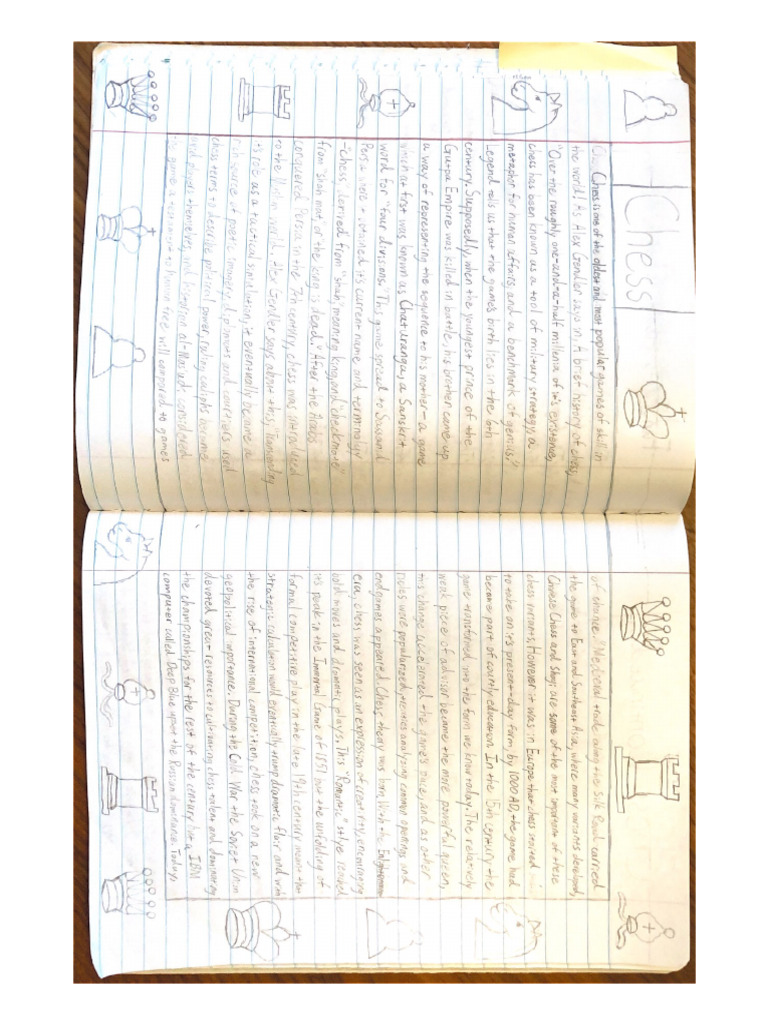 Chess
Chess is one of the oldest and most popular games of skill in
the world! As Alex Gendler says in, A brief history of chess,
"Over the roughly one-and-a-half millenia of it's existence,
chess has been known as a tool of military strategy, a
metaphor for human affairs, and a benchmark of genius."
Legend tells us that the games birth lies in the 6th
century. Supposedly, when the youngest prince of the
Gupta Empire was killed in battle, his brother came up
a way of representing the sequence to his mother- a game
which at first was known as Chaturanga, a Sanskrit
word for "four divisions. This game spread to
Persia where it obtained it's current name and terminology
-"chess", derived from "shah" meaning king, and "checkmate"
from "shah mat" or "the king is dead." After the Arabs
conquered Persia in the 7th century, chess was introduced
to the Alex Gendler says about this,
it's role as a tactical simulation, it eventually became a
rich source of poetic imagery, diplomats and courtiers used
chess terms to describe political power, ruling caliphs became
avid players themselves, and historian al-Mas'udi considered
the game a testament to human free will compared to games
of chance." Medieval trade along the Silk Road carried
the game to East and Southeast Asia, where many variants developed,
Chinese Chess and shogi are some of the most important of these
chess variants. However it was in Europe that chess started
to take on it's present-day form, by 1000 AD, the game had
become part of courtly education. In the 15th century the
game transformed into the form we know today. The relatively
weak piece of advisor became the more powerful queen,
this change accelerated the game's pace, and as other
rules were popularized, treaties analyzing common openings and
endgames appeared. Chess theory was born. With the Enlightenment
era, chess was seen as an expression of creativity, encouraging
bold moves and dramatic plays. This "Romantic" style reached
it's peak in the Immortal Game of 1851 but the unfolding of
formal competitive play in the late 19th century meant that
strategic calculation would eventually trump dramatic flair and with
the rise of international competition, chess took on a new
geopolitical importance. During the Cold War the Soviet Union
devoted great resources to cultivating chess talent and dominating
the championships for the rest of the century but a IBM
computer called Deep Blue upset the Russian dominance. Today,